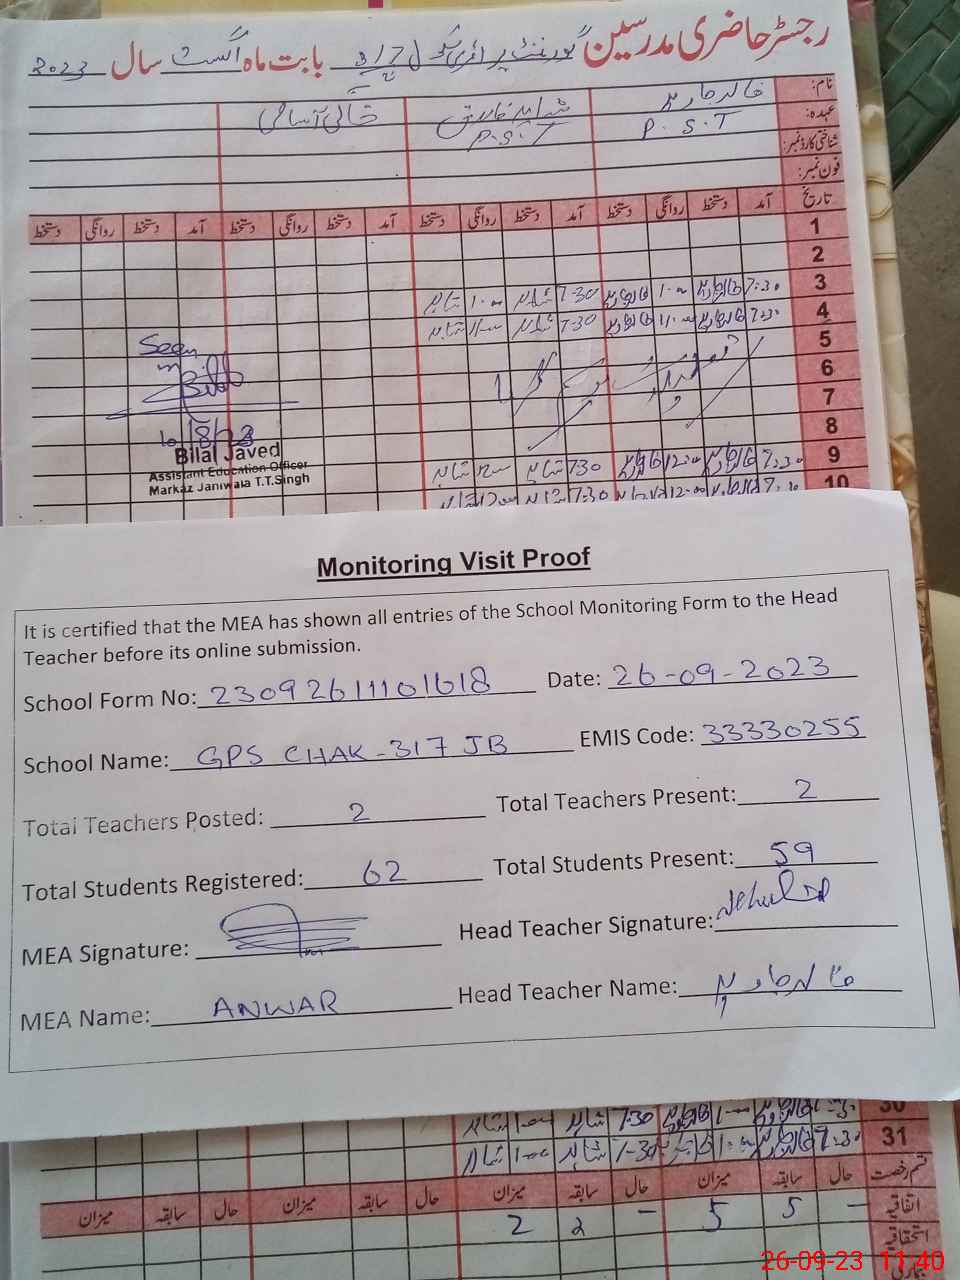 رجسٹر حاضری مدرسین گورنمنٹ پرائمری سکول 317 بابت ماہ اگست سال 2023
نام: خالد جاوید خالی آسامی
عہدہ: P.S.T P.S.T
شناختی کارڈ نمبر:
فون نمبر:
تاریخ آمد دستخط روانگی دستخط آمد دستخط روانگی دستخط آمد دستخط روانگی دستخط آمد دستخط روانگی دستخط
1
2
3 7:30 1:00 7-30 1:00
4 7:30 11:00 7-30
5
6
7
8
9 7:30 12:00 7:30
10 7:30 12:00 7:30
Seen
Bilal Javed
Assistant Education Officer
Markaz Janiwala T.T.Singh
Monitoring Visit Proof
It is certified that the MEA has shown all entries of the School Monitoring Form to the Head
Teacher before its online submission.
School Form No: 23092611101618 Date: 26-09-2023
School Name: GPS CHAK-317 JB EMIS Code: 33330255
Total Teachers Posted: 2 Total Teachers Present: 2
Total Students Registered: 62 Total Students Present: 59
MEA Signature: Head Teacher Signature:
MEA Name: ANWAR Head Teacher Name: خالد جاوید
30 7:30
31 7:30
قسم رخصت حال سابقہ میزان حال سابقہ میزان حال سابقہ میزان حال سابقہ میزان
اتفاقیہ - 5 5 - 2 2
استحقاقیہ
26-09-23 11:40